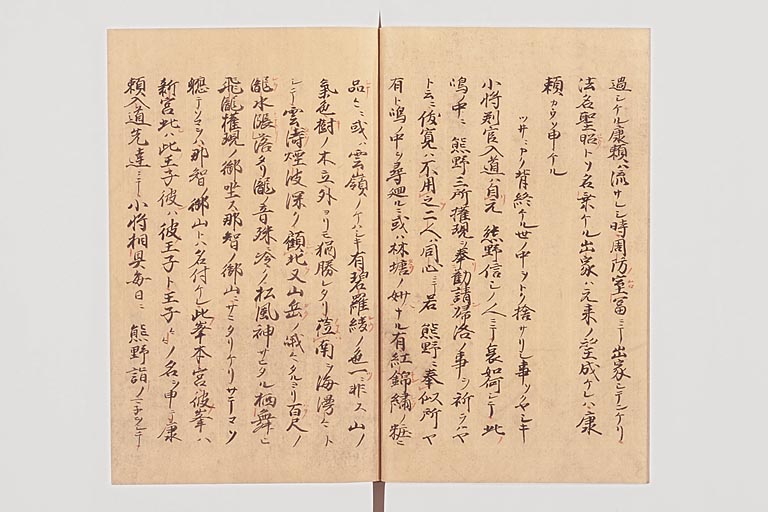 過シケル康頼ハ流サレシ時周防室冨ニテ出家シテンケリ
法名聖照トソ名乗ケル出家ハ元来ノ望成ケレハ康
頼カクソ申ケル
ツヰニカク背終ケル世ノ中ヲトク捨サリシ事ソクヤシキ
小将判官入道ハ自元熊野信シノ人ニテ哀如何シテ此
嶋ノ中ニ熊野三所権現ヲ奉勧請帰洛ノ事ヲ祈ラハヤ
トニ俊寛ハ不用之二人ハ同心ニテ若熊野ニ奉似所ヤ
有ト嶋ノ中ヲ尋廻ルニ或ハ林塘ノ妙ナル有紅錦繍ノ粧
品々ニ或ハ雲嶺ノ有碧羅綾ノ色一ニ非ス山ノ
氣色樹ノ木立外ヨリモ猶勝レタリ南ヲ海漫々ト
シテ雲濤煙波深ク顧北又山岳ノ峨々タルヨリ百尺ノ
瀧水漲落タリ瀧ノ音殊冷ク松風神サヒタル栖
飛瀧権現ノ御坐ス那智ノ御山ニサモタリケリサテコソ
ハ那智ノ御山トハ名付ケレ此峯本宮彼峯ハ
新宮此ハ此王子彼ハ彼王子ト王子々々ノ名ヲ申テ康
頼入道先達ニテ小将相具毎日ニ熊野詣ノ